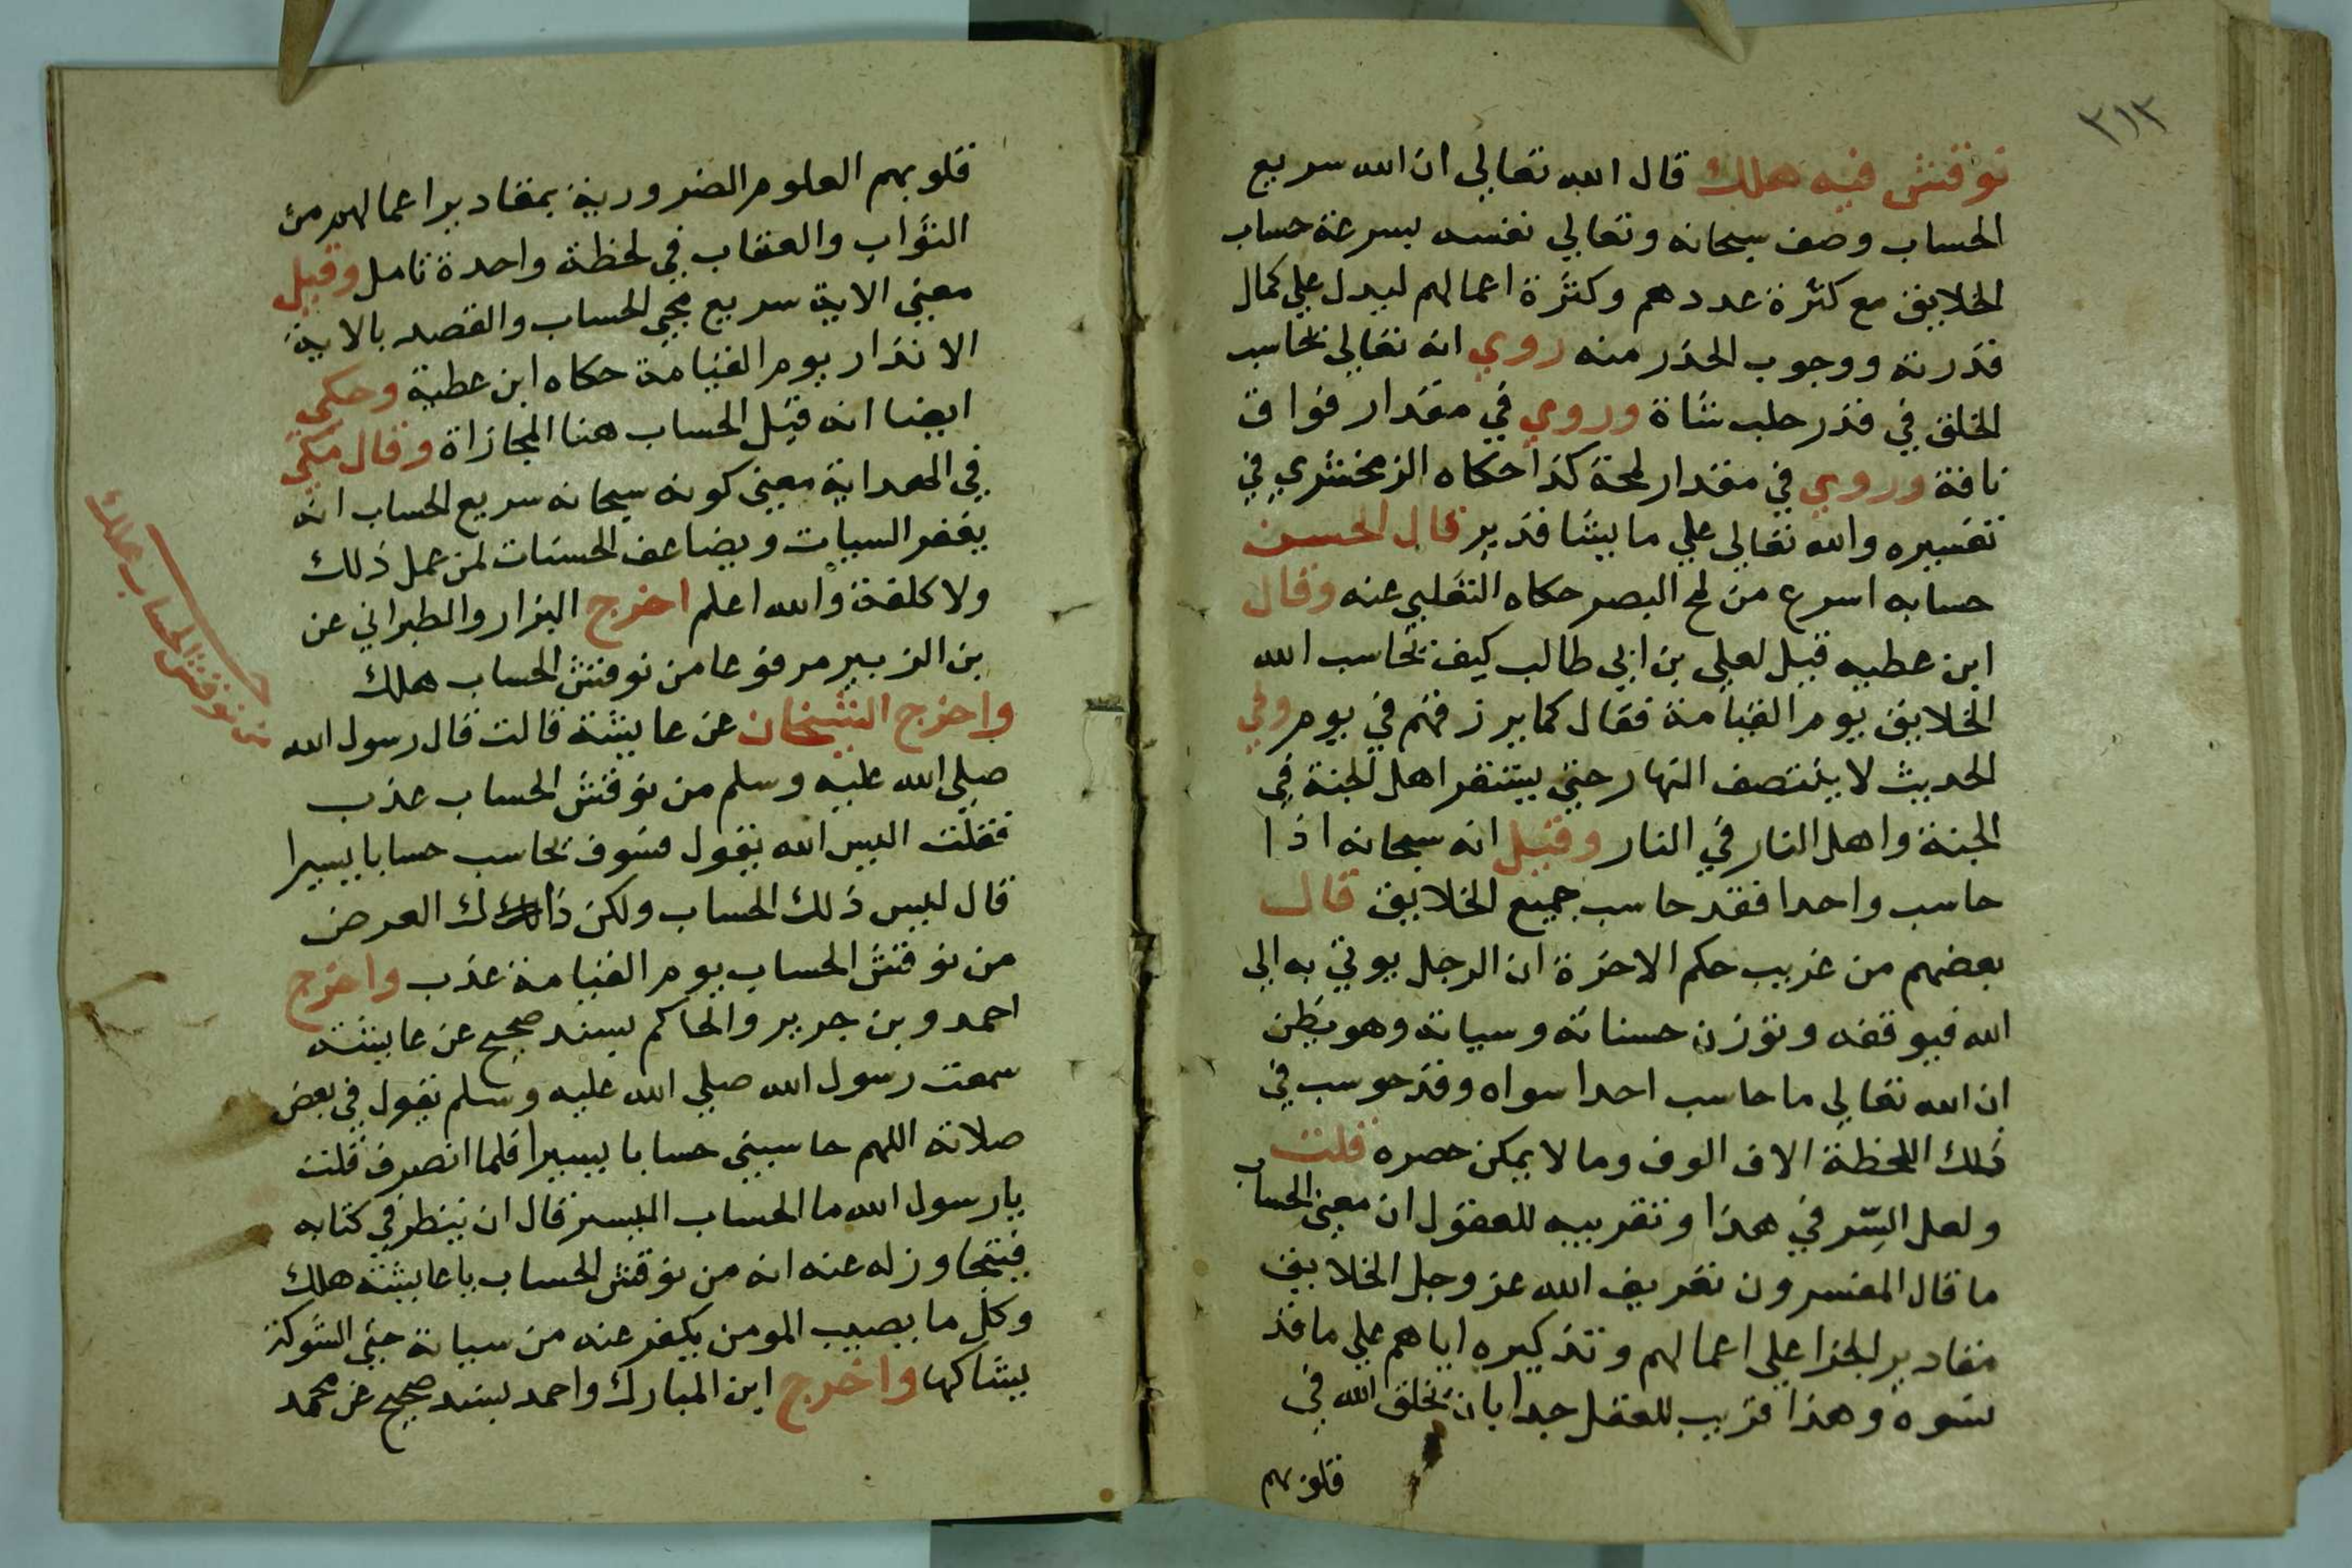 ٣١٣
نوقش فيه هلك قال الله تعالي ان الله سريع
الحساب وصف سبحانه وتعالي نفسه بسرعة حساب
الخلايق مع كثرة عددهم وكثرة اعمالهم ليدل علي كمال
قدرته ووجوب الحذر منه روي انه تعالي يحاسب
الخلق في قدر حلب شاة وروي في مقدار فواق
ناقة وروي في مقدار لمحة كذا حكاه الزمخشري في
تفسيره والله تعالي علي ما يشا قدير قال الحسن
حسابه اسرع من لمح البصر حكاه الثعلبي عنه وقال
ابن عطيه قيل لعلي بن ابي طالب كيف يحاسب الله
الخلايق يوم القيامة فقال كما يرزقهم في يوم وفي
الحديث لا ينتصف النهار حتي يستقر اهل الجنة في
الجنة واهل النار في النار وقيل انه سبحانه اذا
حاسب واحدا فقد حاسب جميع الخلايق قال
بعضهم من غريب حكم الاخرة ان الرجل يوتي به الي
الله فيوقفه وتوزن حسناته وسياته وهو يظن
ان الله تعالي ما حاسب احدا سواه وقد حوسب في
تلك اللحظة الاف الوف وما لا يمكن حصره قلت
ولعل السر في هذا وتقريبه للعقول ان معني الحساب
ما قال المفسرون تعريف الله عز وجل الخلايق
مقادير الجزا علي اعمالهم وتذكيره اياهم علي ما قد
نسوه وهذا قريب للعقل جدا بان يخلق الله في
قلوبهم
قلوبهم العلوم الضرورية بمقادير اعمالهم من
الثواب والعقاب في لحظة واحدة تامل وقيل
معني الاية سريع مجي الحساب والقصد بالاية
الانذار يوم القيامة حكاه ابن عطية وحكي
ايضا انه قيل الحساب هنا المجازاة وقال مكي
في الهداية معني كونه سبحانه سريع الحساب انه
يغفر السيات ويضاعف الحسنات لمن عمل ذلك
ولا كلفة والله اعلم اخرج البزار والطبراني عن
بن الزبير مرفوعا من نوقش الحساب هلك
واخرج الشيخان عن عايشة قالت قال رسول الله
صلي الله عليه وسلم من نوقش الحساب عذب
فقلت اليس الله يقول فسوف يحاسب حسابا يسيرا
قال ليس ذلك الحساب ولكن ذاك العرض
من نوقش الحساب يوم القيامة عذب واخرج
احمد وبن جرير والحاكم بسند صحيح عن عايشة
سمعت رسول الله صلي الله عليه وسلم يقول في بعض
صلاته اللهم حاسبني حسابا يسيرا فلما انصرف قلت
يا رسول الله ما الحساب اليسير قال ان ينظر في كتابه
فيتجاوز له عنه انه من نوقش الحساب يا عايشة هلك
وكل ما يصيب المومن يكفر عنه من سياته حتي الشوكة
يشاكها واخرج ابن المبارك واحمد بسند صحيح عن محمد
من نوقش الحساب هلك